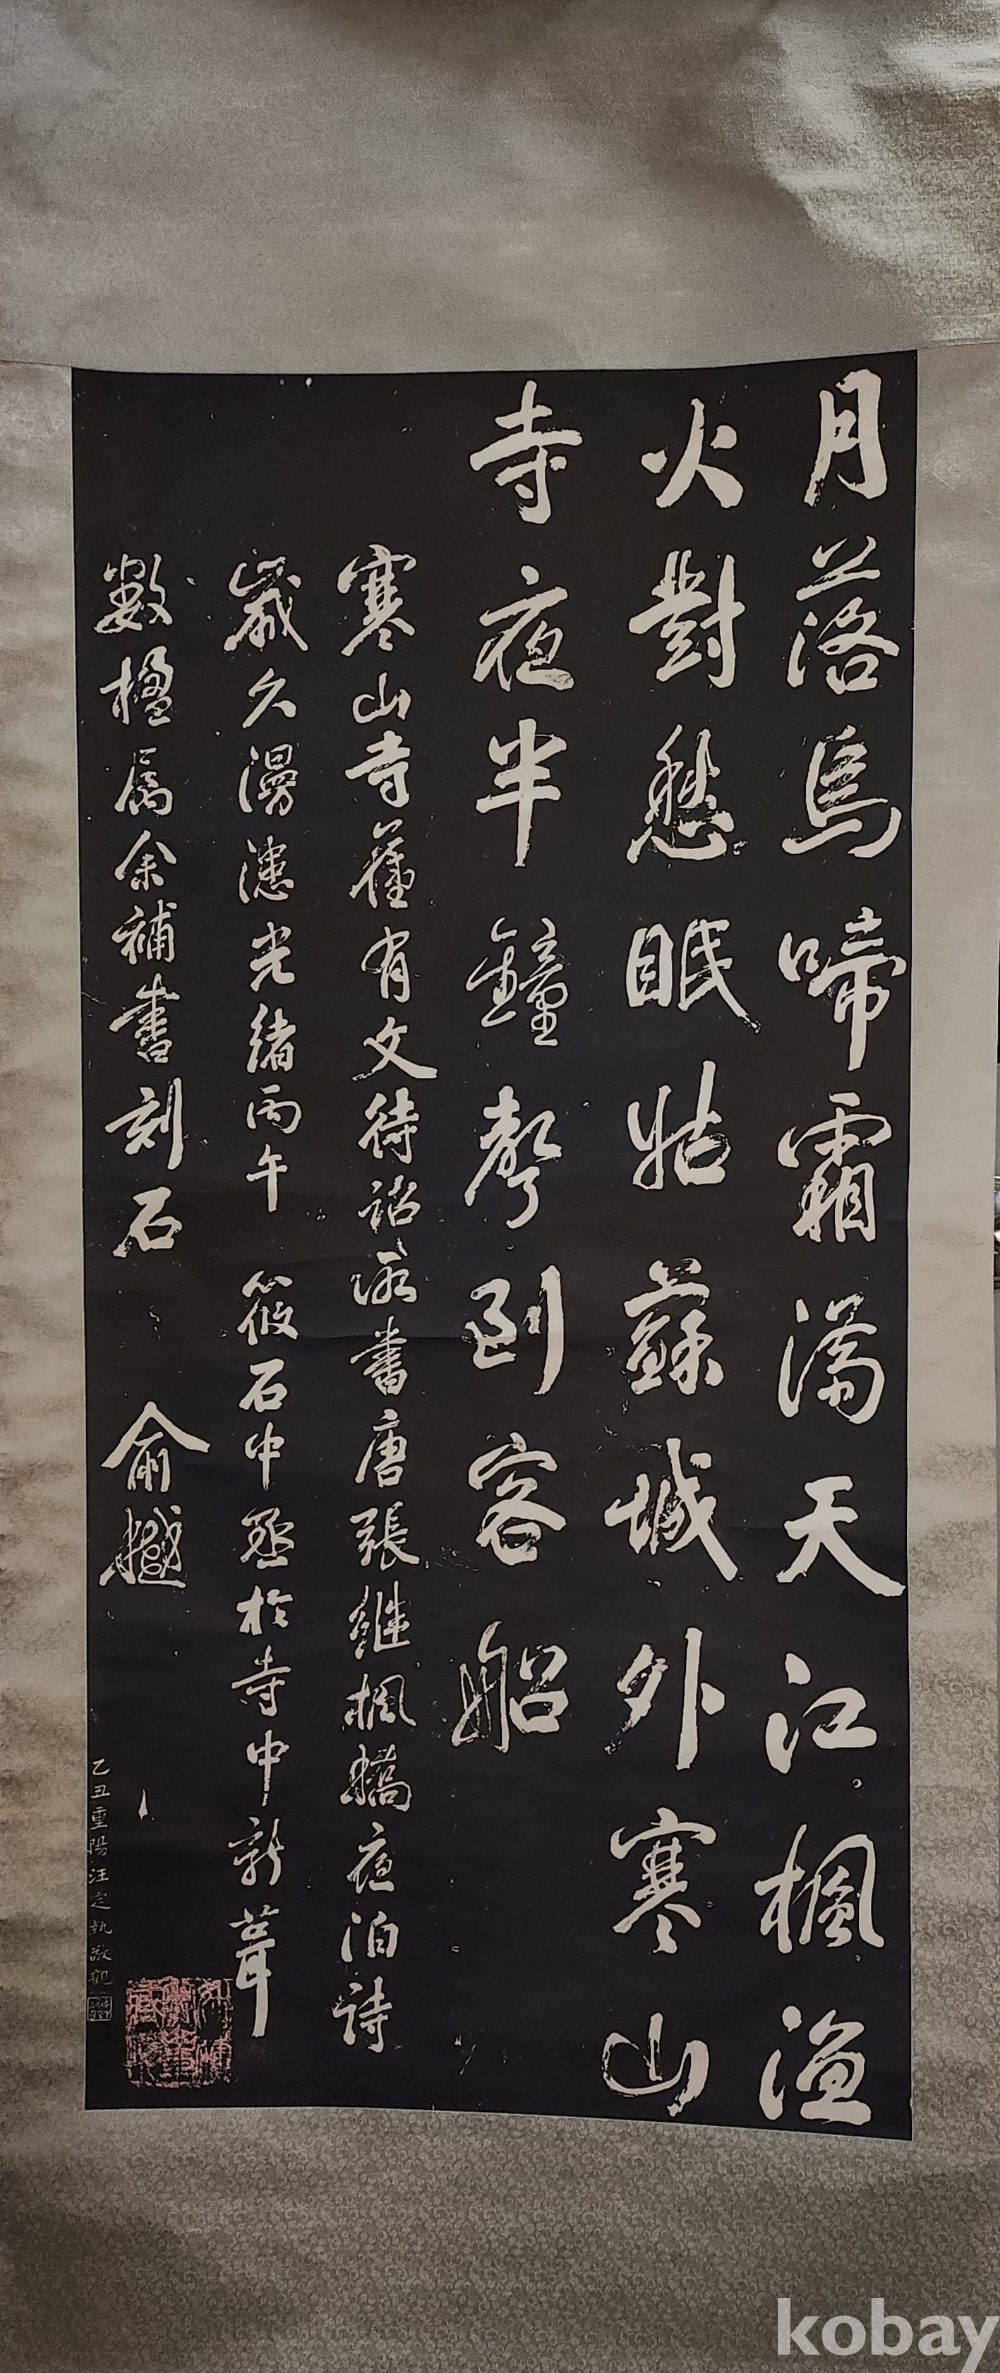 月落烏啼霜滿天江楓漁
火對愁眠姑蘇城外寒山
寺夜半鐘聲到客船
寒山寺舊有文待詔所書唐張繼楓橋夜泊詩
歲久漫漶光緒丙午 筱石中丞於寺中新葺
數楹屬余補書刻石 俞樾
乙丑重陽汪定執敬觀
kobay